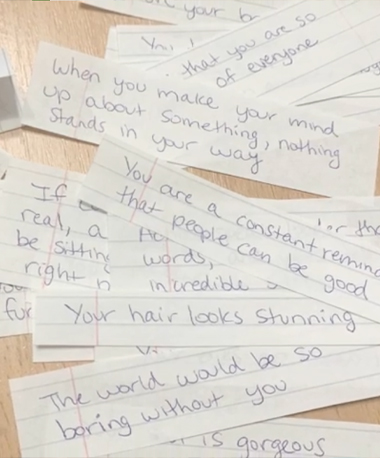 your
You
that you are so
of everyone
When you make your mind
up about something, nothing
stands in your way
You are a constant
that people can be good
If
real, a
be
right
words,
incredible
Your hair looks stunning
The world would be so
boring without you
is gorgeous